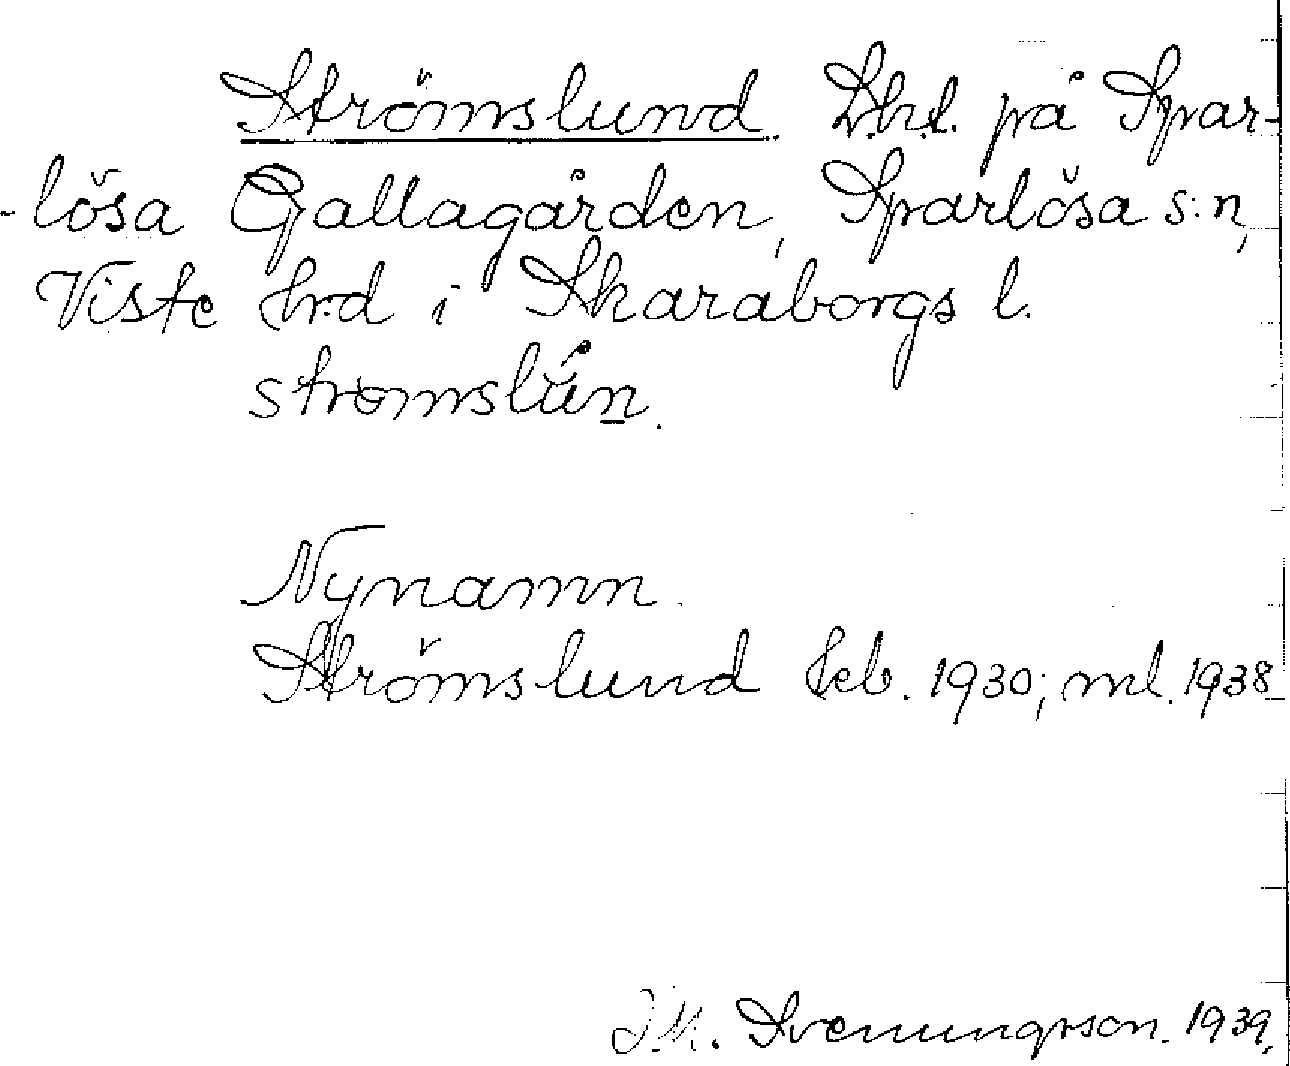 Strömslund. Lht. på Spar-
-lösa Gallagården, Sparlösa s:n,
Viste hrd i Skaraborgs l.
strømslùn.
Nynamn.
Strömslund kb. 1930; ml. 1938
Svenungsson. 1939.